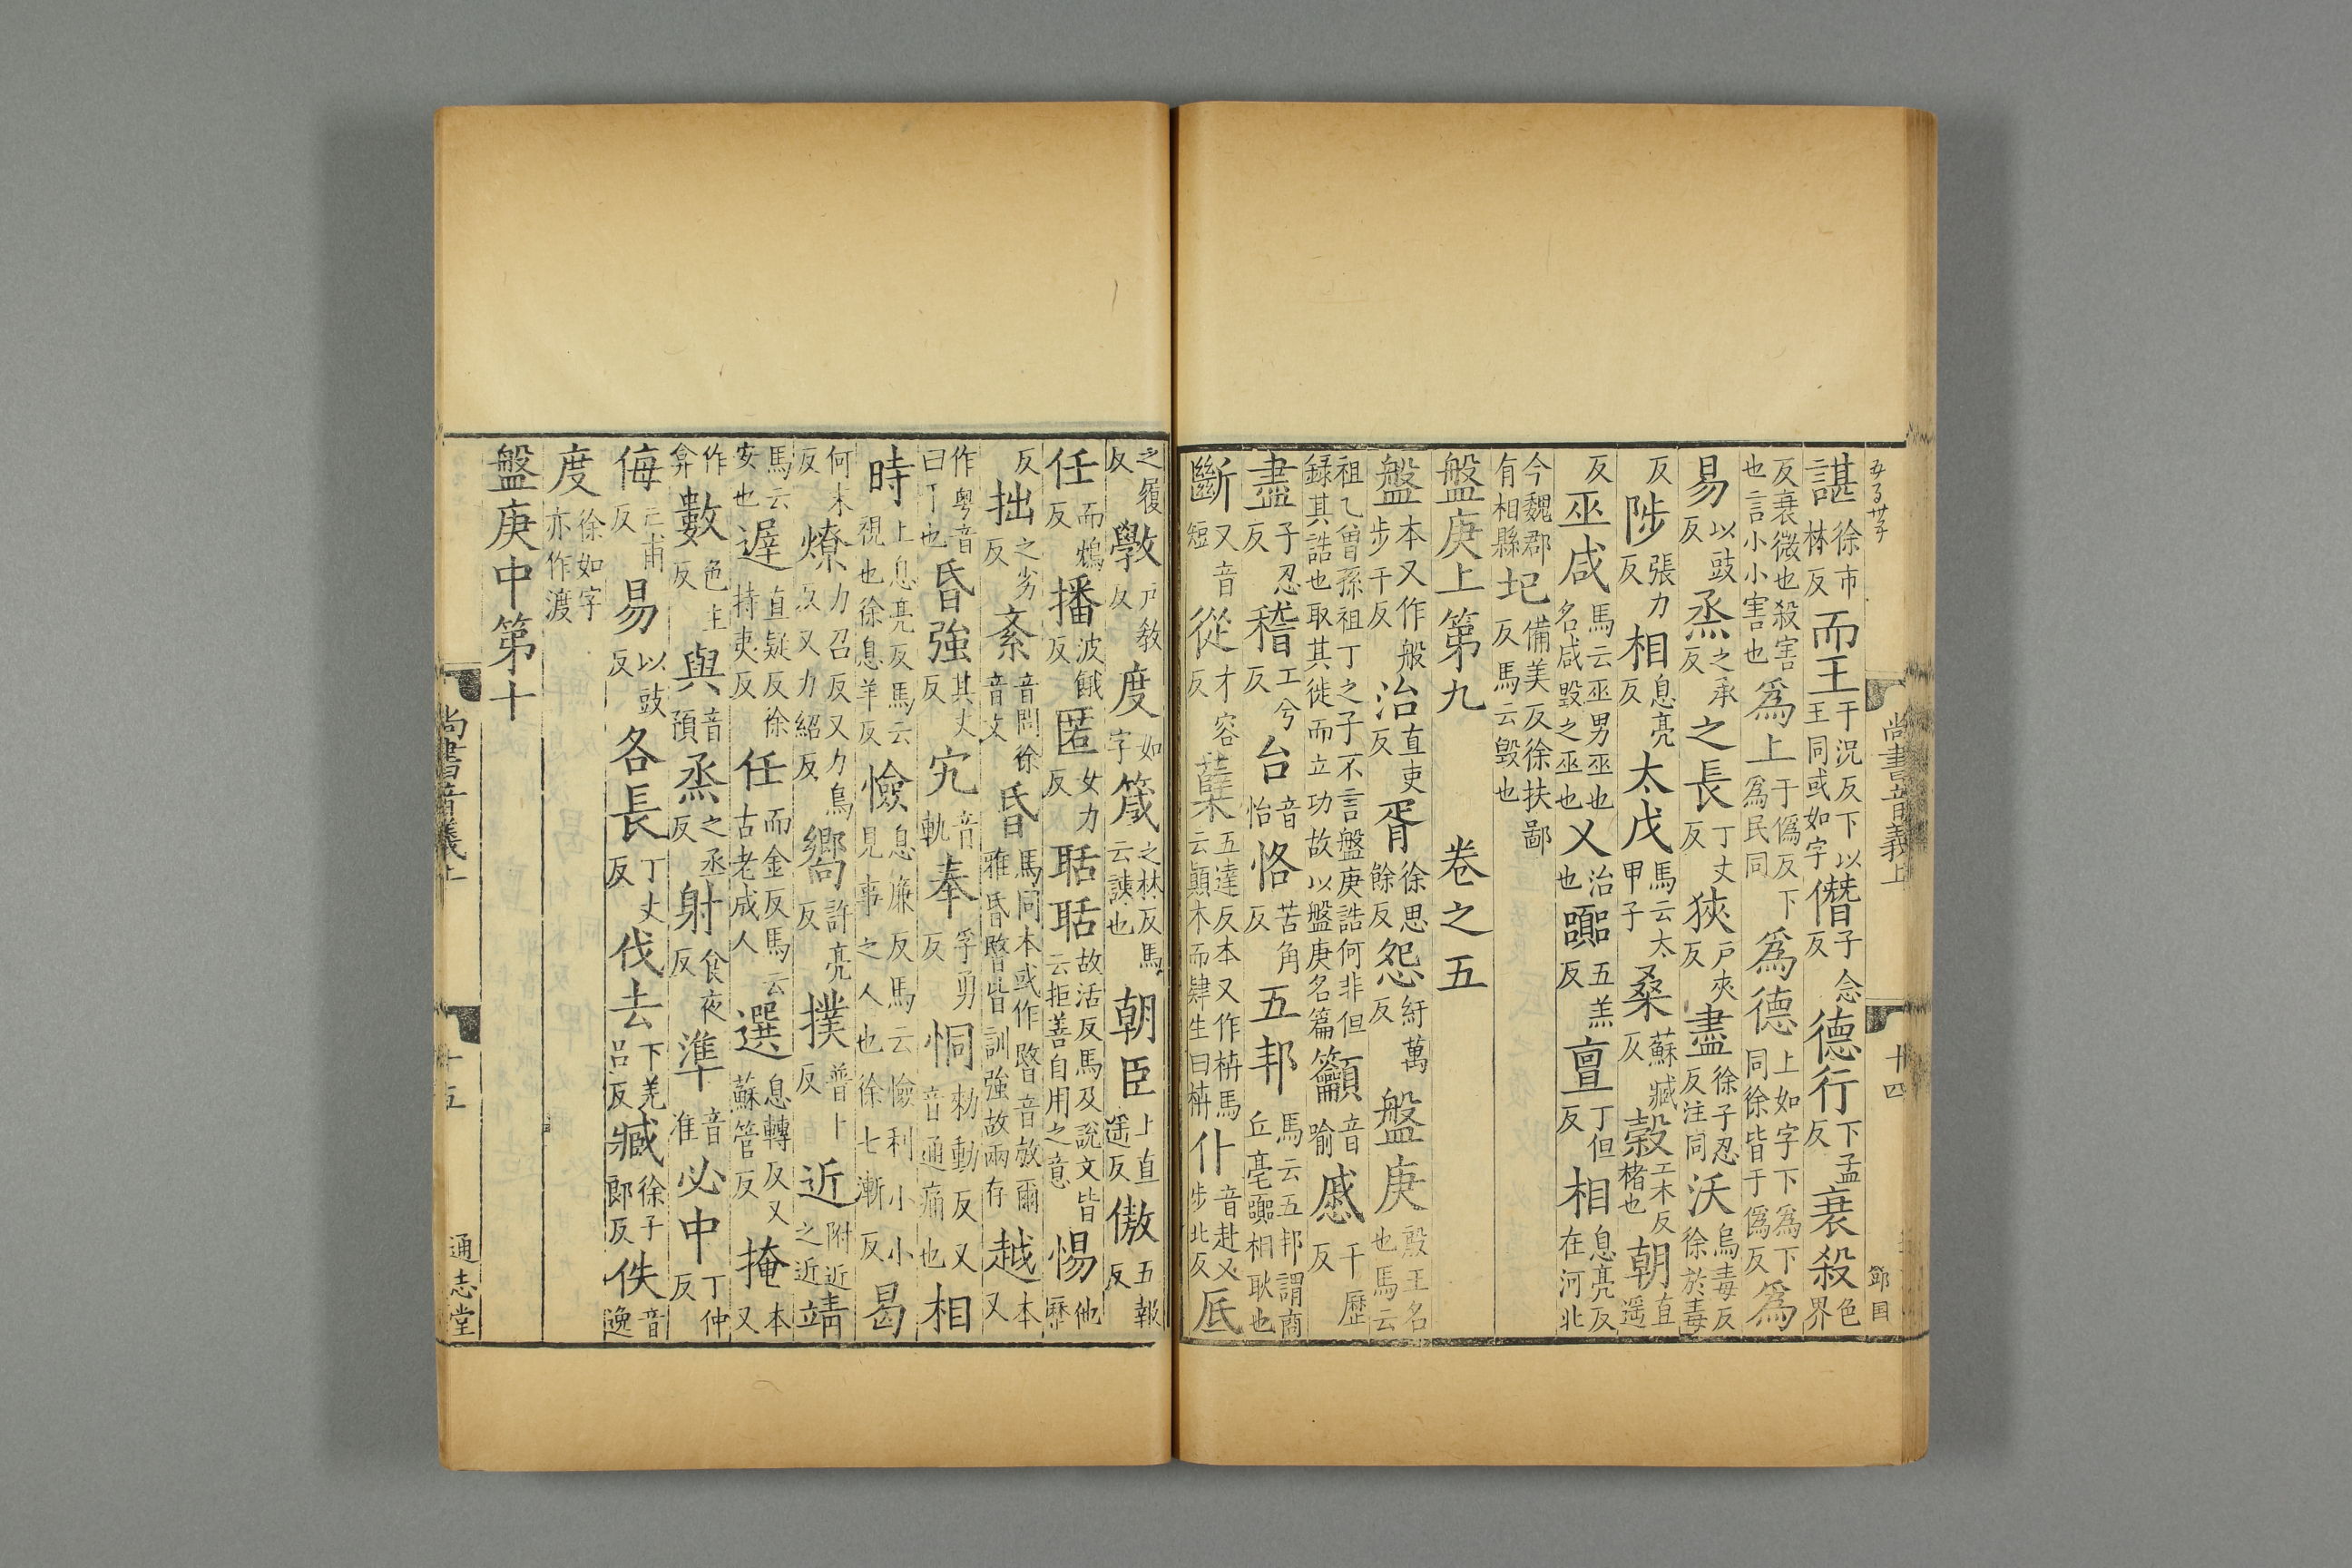 諶徐市林反而王于況反下以王同或如字僭子念反德行下孟反衰殺色界
反衰微也殺害也言小小害也爲上于僞反下爲民同爲德上如字下爲下同徐皆于僞反爲
易以豉反烝之承反之長丁丈反狹戶夾反盡徐子忍反注同沃烏毒反徐於毒
反陟張力反相息亮反太戊馬云太甲子桑蘇臧反榖工木反楮也朝直遥
反巫咸馬云巫男巫也名咸殷之巫也乂治也嚻五羔反亶丁但反相息亮反在河北
今魏郡有相縣圮備美反徐扶鄙反馬云毁也
盤庚上第九 卷之五
盤本又作般步干反治直吏反胥徐思餘反怨紆萬反盤庚殷王名也馬云
祖乙曾孫祖丁之子不言盤庚誥何非但録其誥也取其徙而立功故以盤庚名篇籲音喻慼千歷反
盡子忍反稽工兮反台音怡恪苦角反五邦馬云五邦謂商丘亳嚻相耿也
斷又音短從才容反蘖五達反本又作枿馬云顚木而肄生曰枿仆音赴又步北反厎
之履反斆戶敎反度如字箴之林反馬云諫也朝臣上直遥反傲五報反
任而鴆反播波餓反匿女力反聒聒故活反馬及說文皆云拒善自用之意惕他歷
反拙之劣反紊音問徐音文昏馬同本或作暋音敃爾雅昏暋皆訓強故兩存越本又
作粤音曰丁也昏強其丈反宄音軌奉孚勇反恫勑動反又音通痛也相
時上息亮反馬云視也徐息羊反憸息廉反馬云憸利小小見事之人也徐七漸反曷
何末反燎力召反又力鳥反又力紹反嚮許亮反撲普卜反近附近之近靖
馬云安也遲直疑反徐持夷反任而金反馬云古老成人選息轉反又蘇管反掩本又
作弇數色主反與音預烝之丞反射食夜反準音准必中丁仲反
侮亡甫反易以豉反各長丁丈反伐去下羌呂反臧徐子郎反佚音逸
度徐如字亦作渡
盤庚中第十
尚書音義上
廿四
尚書音義上
十五
通志堂